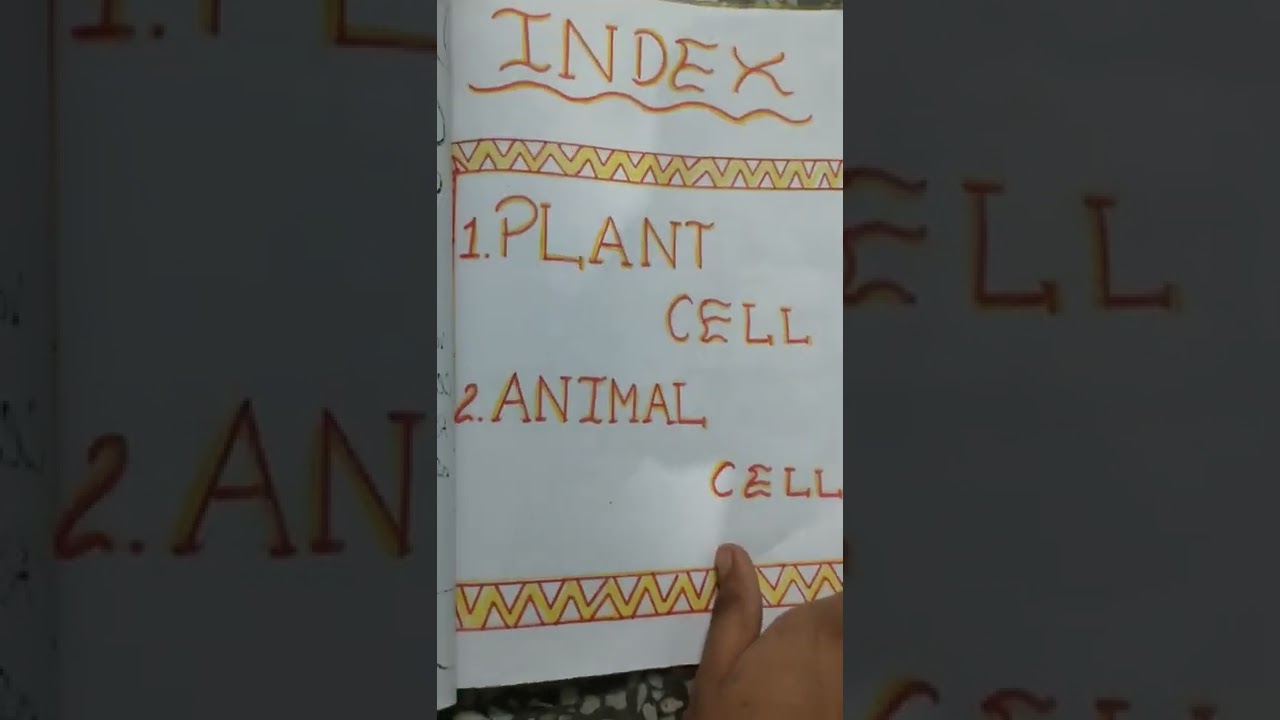 INDEX
1. PLANT
CELL
2. ANIMAL
CELL